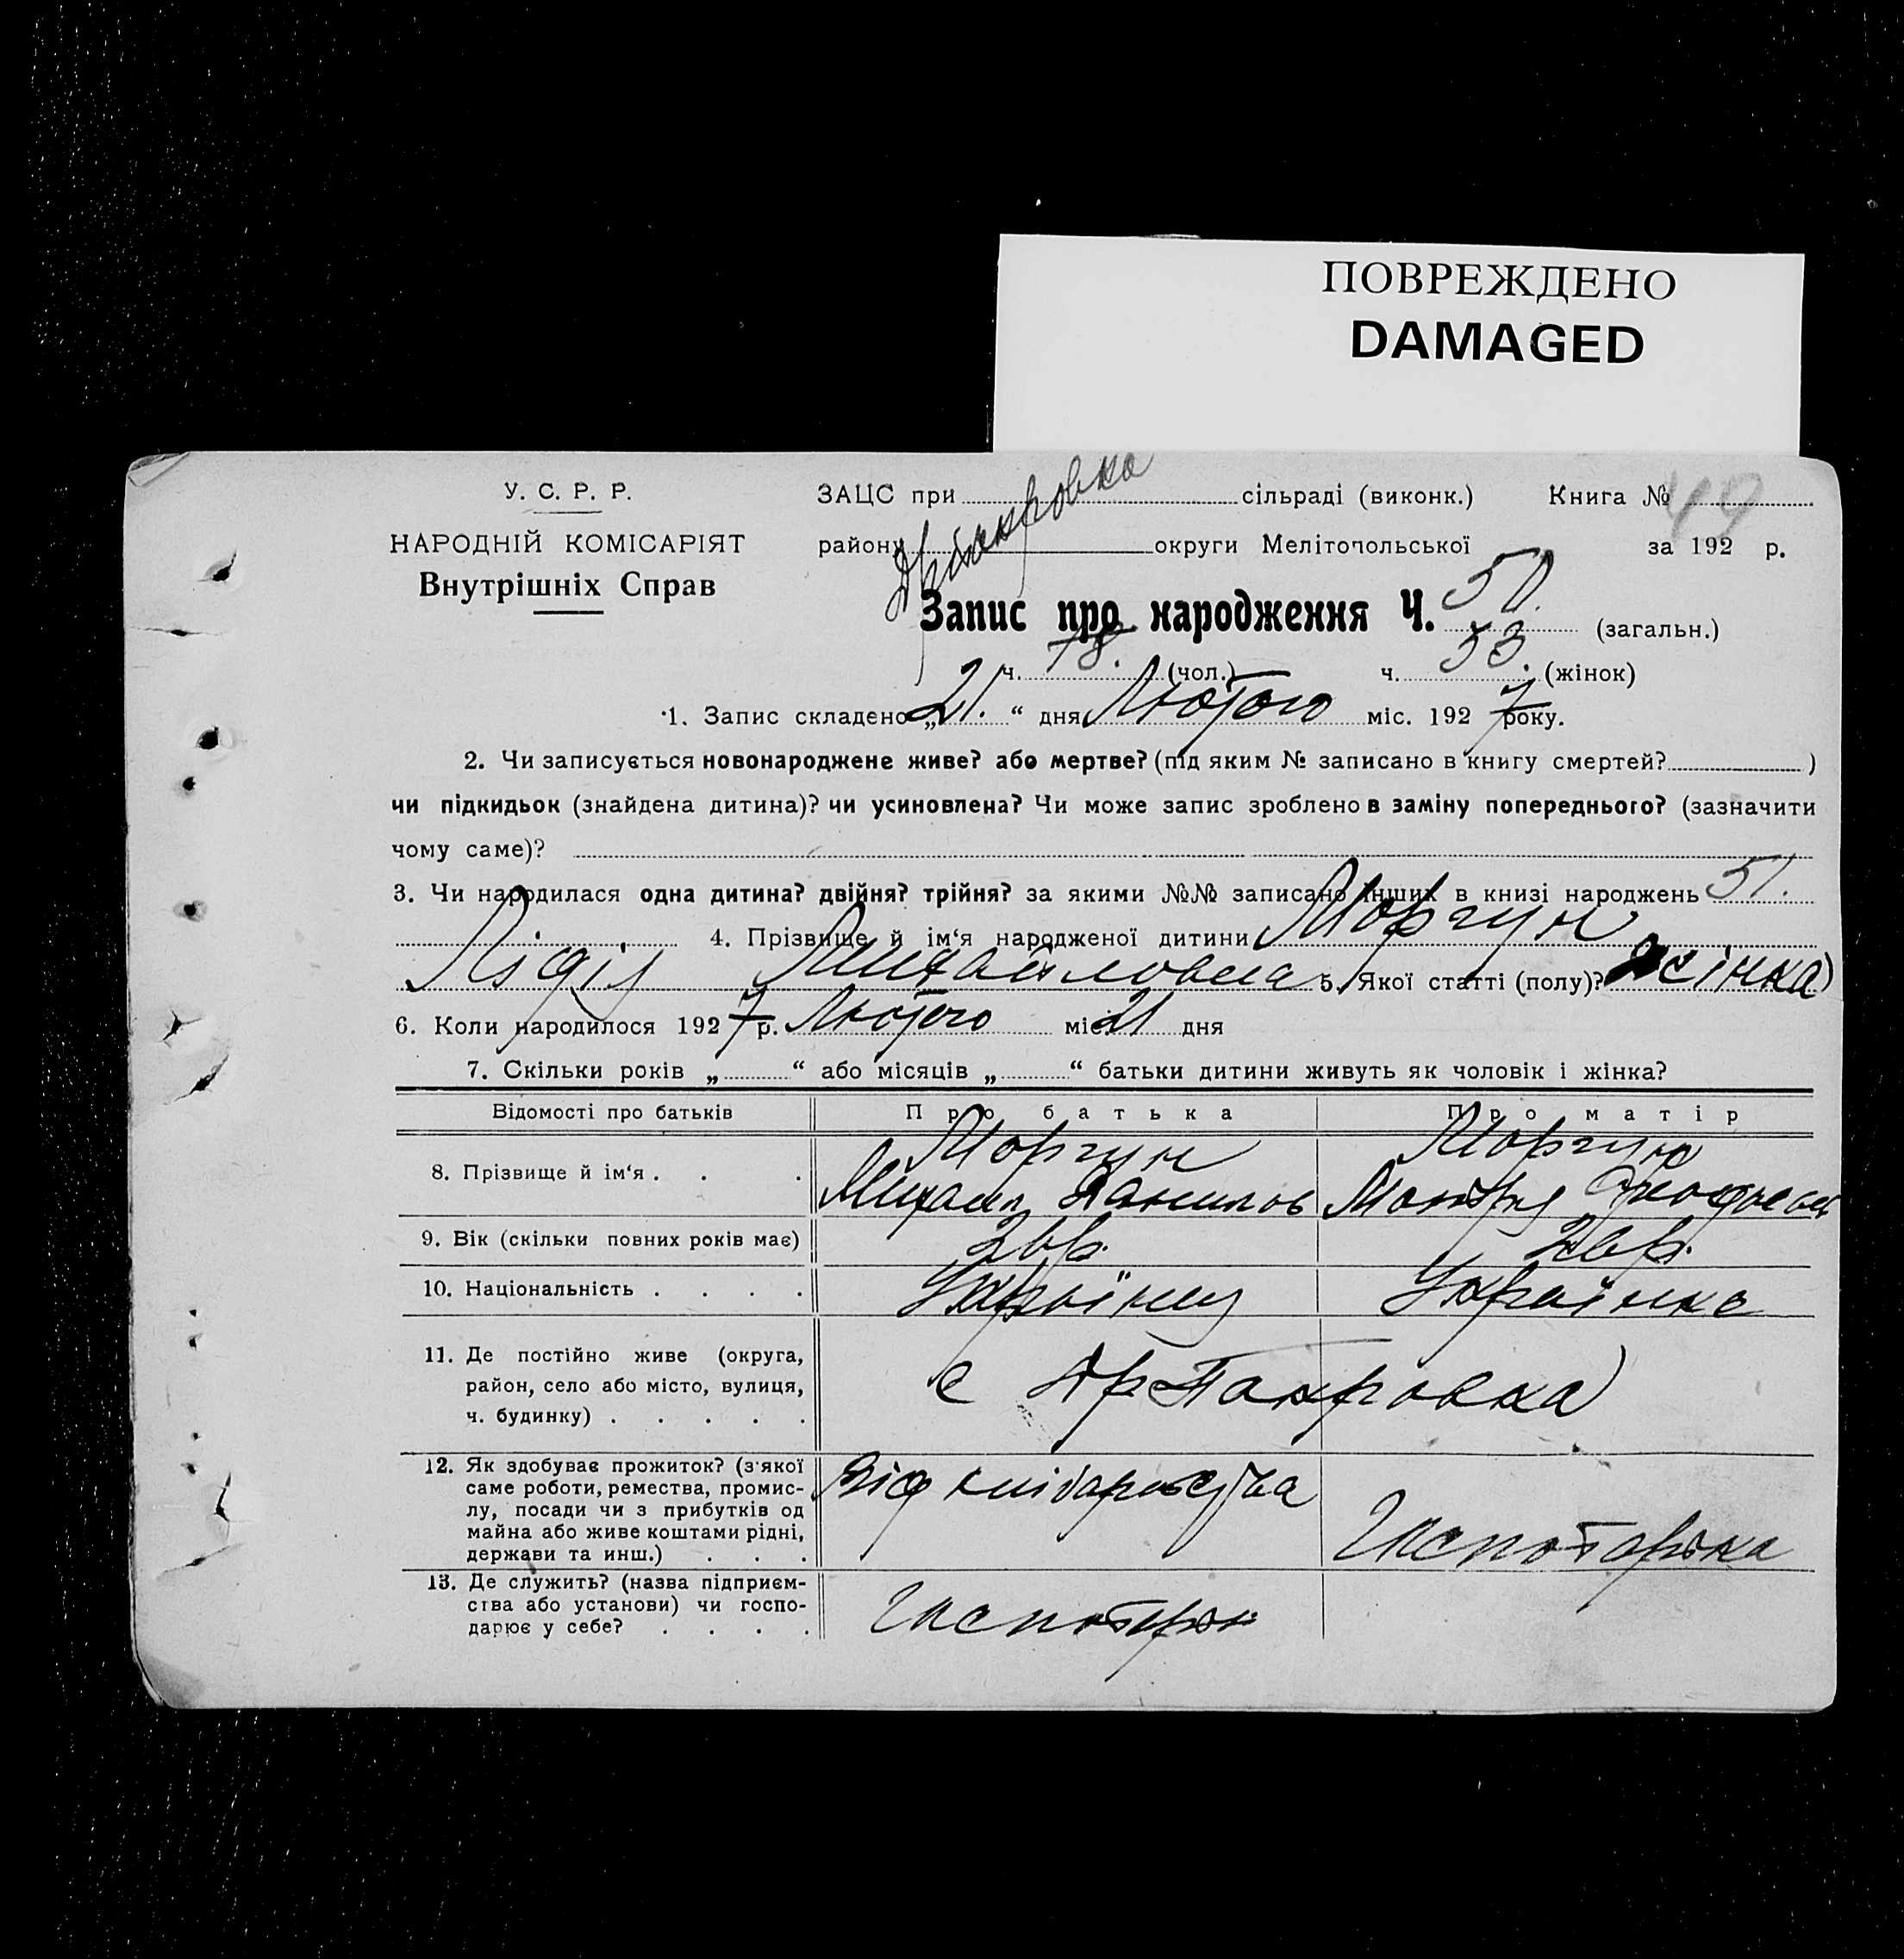 ПОВРЕЖДЕНО
DAMAGED
У. С. Р. Р.
НАРОДНІЙ КОМІСАРІЯТ
Внутрішніх Справ
ЗАЦС при сільраді (виконк.) Книга № 49
району округи Мелітопольської за 192 р.
Запис про народження Ч. 50. (загальн.)
ч. 18. (чол.) ч. 53. (жінок)
1. Запис складено „21.“ дня Лютого міс. 1927 року.
2. Чи записується новонароджене живе? або мертве? (під яким № записано в книгу смертей? )
чи підкидьок (знайдена дитина)? чи усиновлена? Чи може запис зроблено в заміну попереднього? (зазначити
чому саме)?
3. Чи народилася одна дитина? двійня? трійня? за якими №№ записано інших в книзі народжень 51.
4. Прізвище й ім‘я народженої дитини Моргун
Лідія Михайловна 5. Якої статті (полу)? жінка
6. Коли народилося 1927 р. Лютого міс. 21 дня
7. Скільки років „ “ або місяців „ “ батьки дитини живуть як чоловік і жінка?
Відомості про батьків Про батька Про матір
8. Прізвище й ім‘я . . . Моргун Моргун
Михаил Данилов Мотря
9. Вік (скільки повних років має) 26 р. 26 р.
10. Національність . . . . Українец Українка
11. Де постійно живе (округа,
район, село або місто, вулиця,
ч. будинку) . . . . .
с
12. Як здобуває прожиток? (з‘якої
саме роботи, ремества, промис-
лу, посади чи з прибутків од
майна або живе коштами рідні,
держави та инш.) . . .
Від хліборобства
13. Де служить? (назва підприєм-
ства або установи) чи госпо-
дарює у себе? . . . .